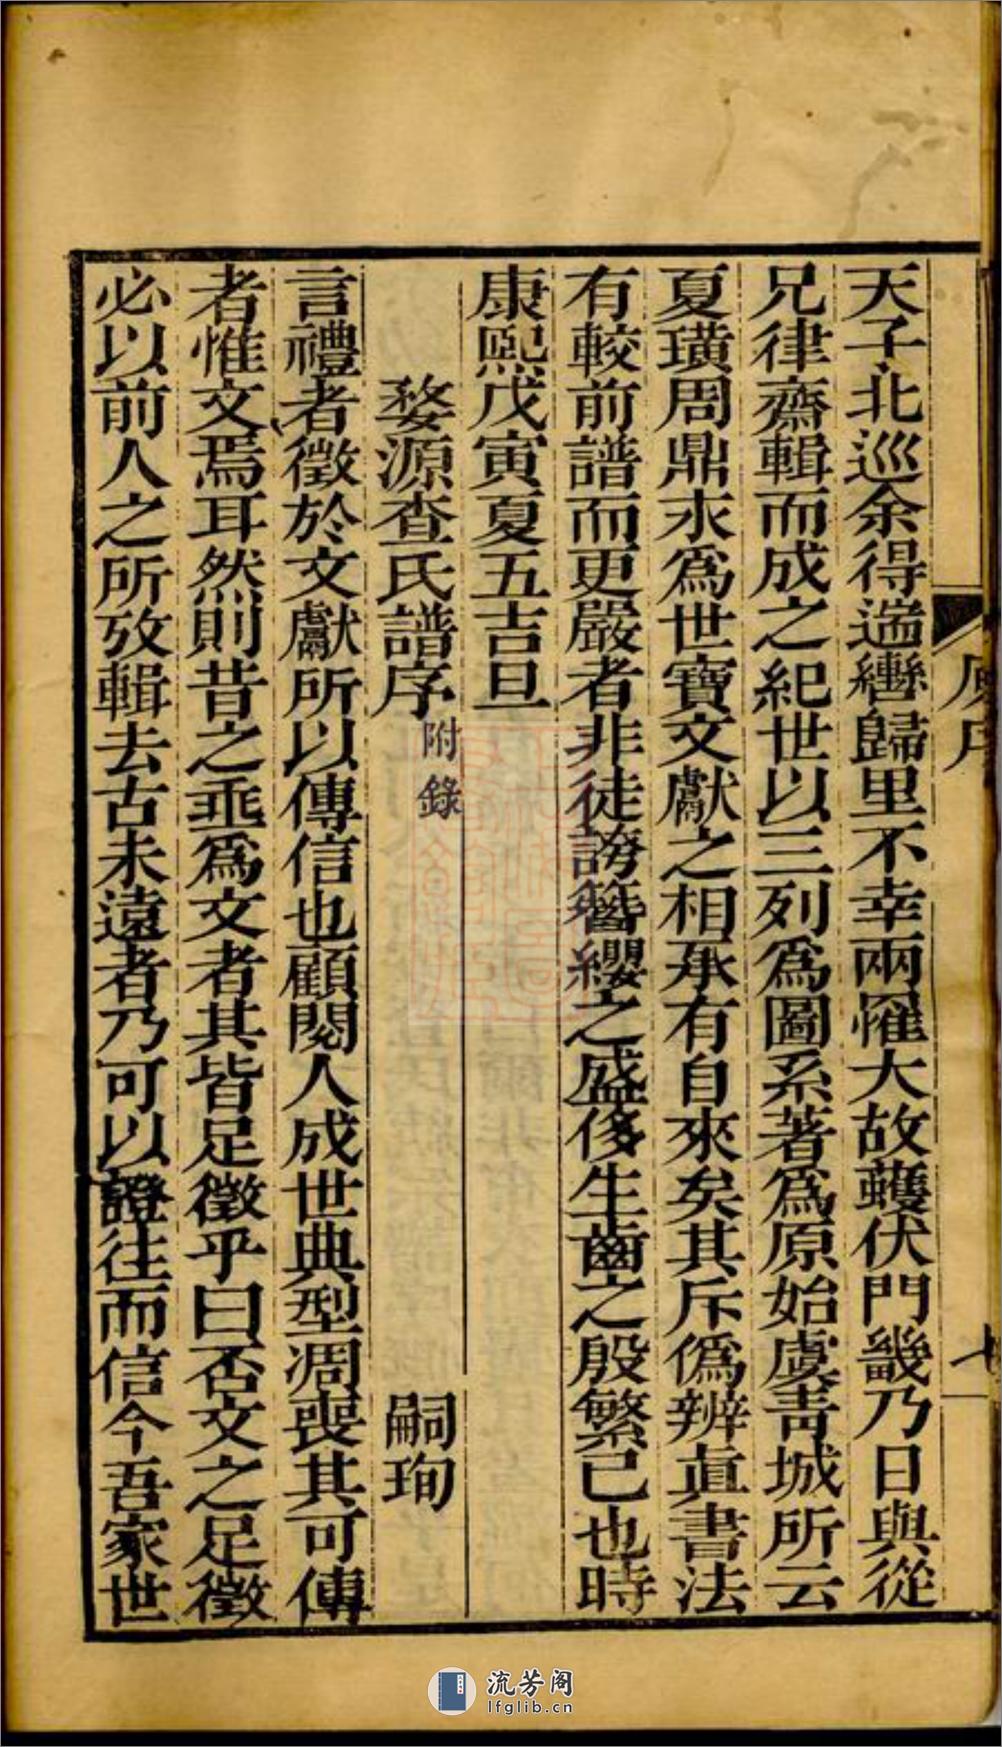 天子北巡余得遄轡歸里不幸兩罹大故蠖伏門畿乃日與從
兄律齋輯而成之紀世以三列爲圖系著爲原始虞靑城所云
夏璜周鼎永爲世寶文獻之相承有自來矣其斥僞辨眞書法
有較前譜而更嚴者非徒誇簪纓之盛侈生齒之殷繁已也時
康熙戊寅夏五吉旦
婺源查氏譜序 附錄 嗣珣
言禮者徵於文獻所以傳信也顧閱人成世典型凋喪其可傳
者惟文焉耳然則昔之乖爲文者其皆足徵乎曰否文之足徵
必以前人之所攷輯去古未遠者乃可以證往而信今吾家世
流芳阁
lfglib.cn